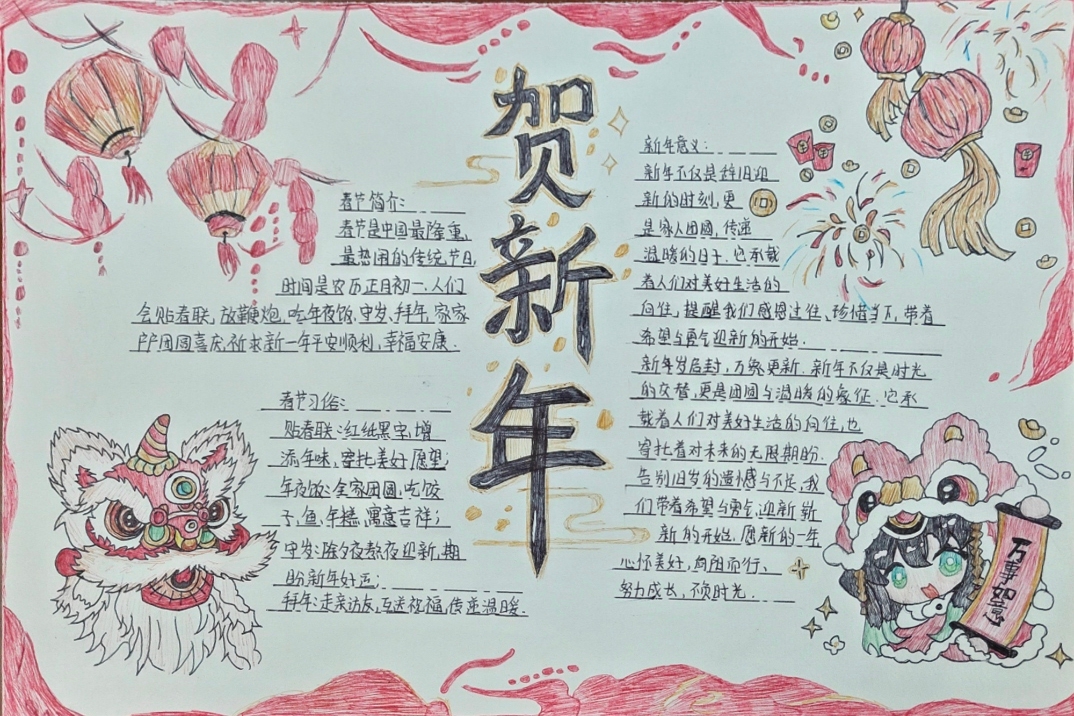 贺新年
春节简介:
春节是中国最隆重,
最热闹的传统节日,
时间是农历正月初一.人们
会贴春联,放鞭炮,吃年夜饭,守岁,拜年,家家
户户团圆喜庆,祈求新一年平安顺利,幸福安康.
春节习俗:
贴春联:红纸黑字,增
添年味,寄托美好愿望;
年夜饭:全家团圆,吃饺
子,鱼,年糕,寓意吉祥;
守岁:除夕夜熬夜迎新,期
盼新年好运;
拜年:走亲访友,互送祝福,传递温暖.
新年意义:
新年不仅是辞旧迎
新的时刻,更
是家人团圆,传递
温暖的日子,它承载
着人们对美好生活的
向往,提醒我们感恩过往、珍惜当下,带着
希望与勇气迎新的开始.
新年岁启封,万象更新.新年不仅是时光
的交替,更是团圆与温暖的象征.它承
载着人们对美好生活的向往,也
寄托着对未来的无限期盼.
告别旧岁的遗憾与不足,我
们带着希望与勇气,迎新崭
新的开始.愿新的一年
心怀美好,向阳而行、
努力成长,不负时光.
万事如意